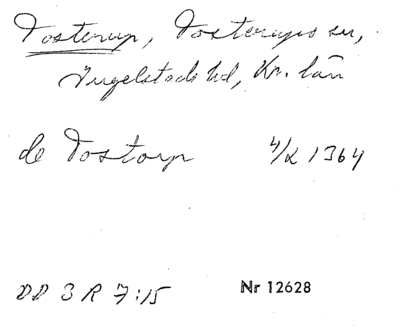 Tosterup, Tosterups sn,
Ingelstads hd, Kr. län
de Tostorp 4/2 1364
DD 3 R 7:15 Nr 12628